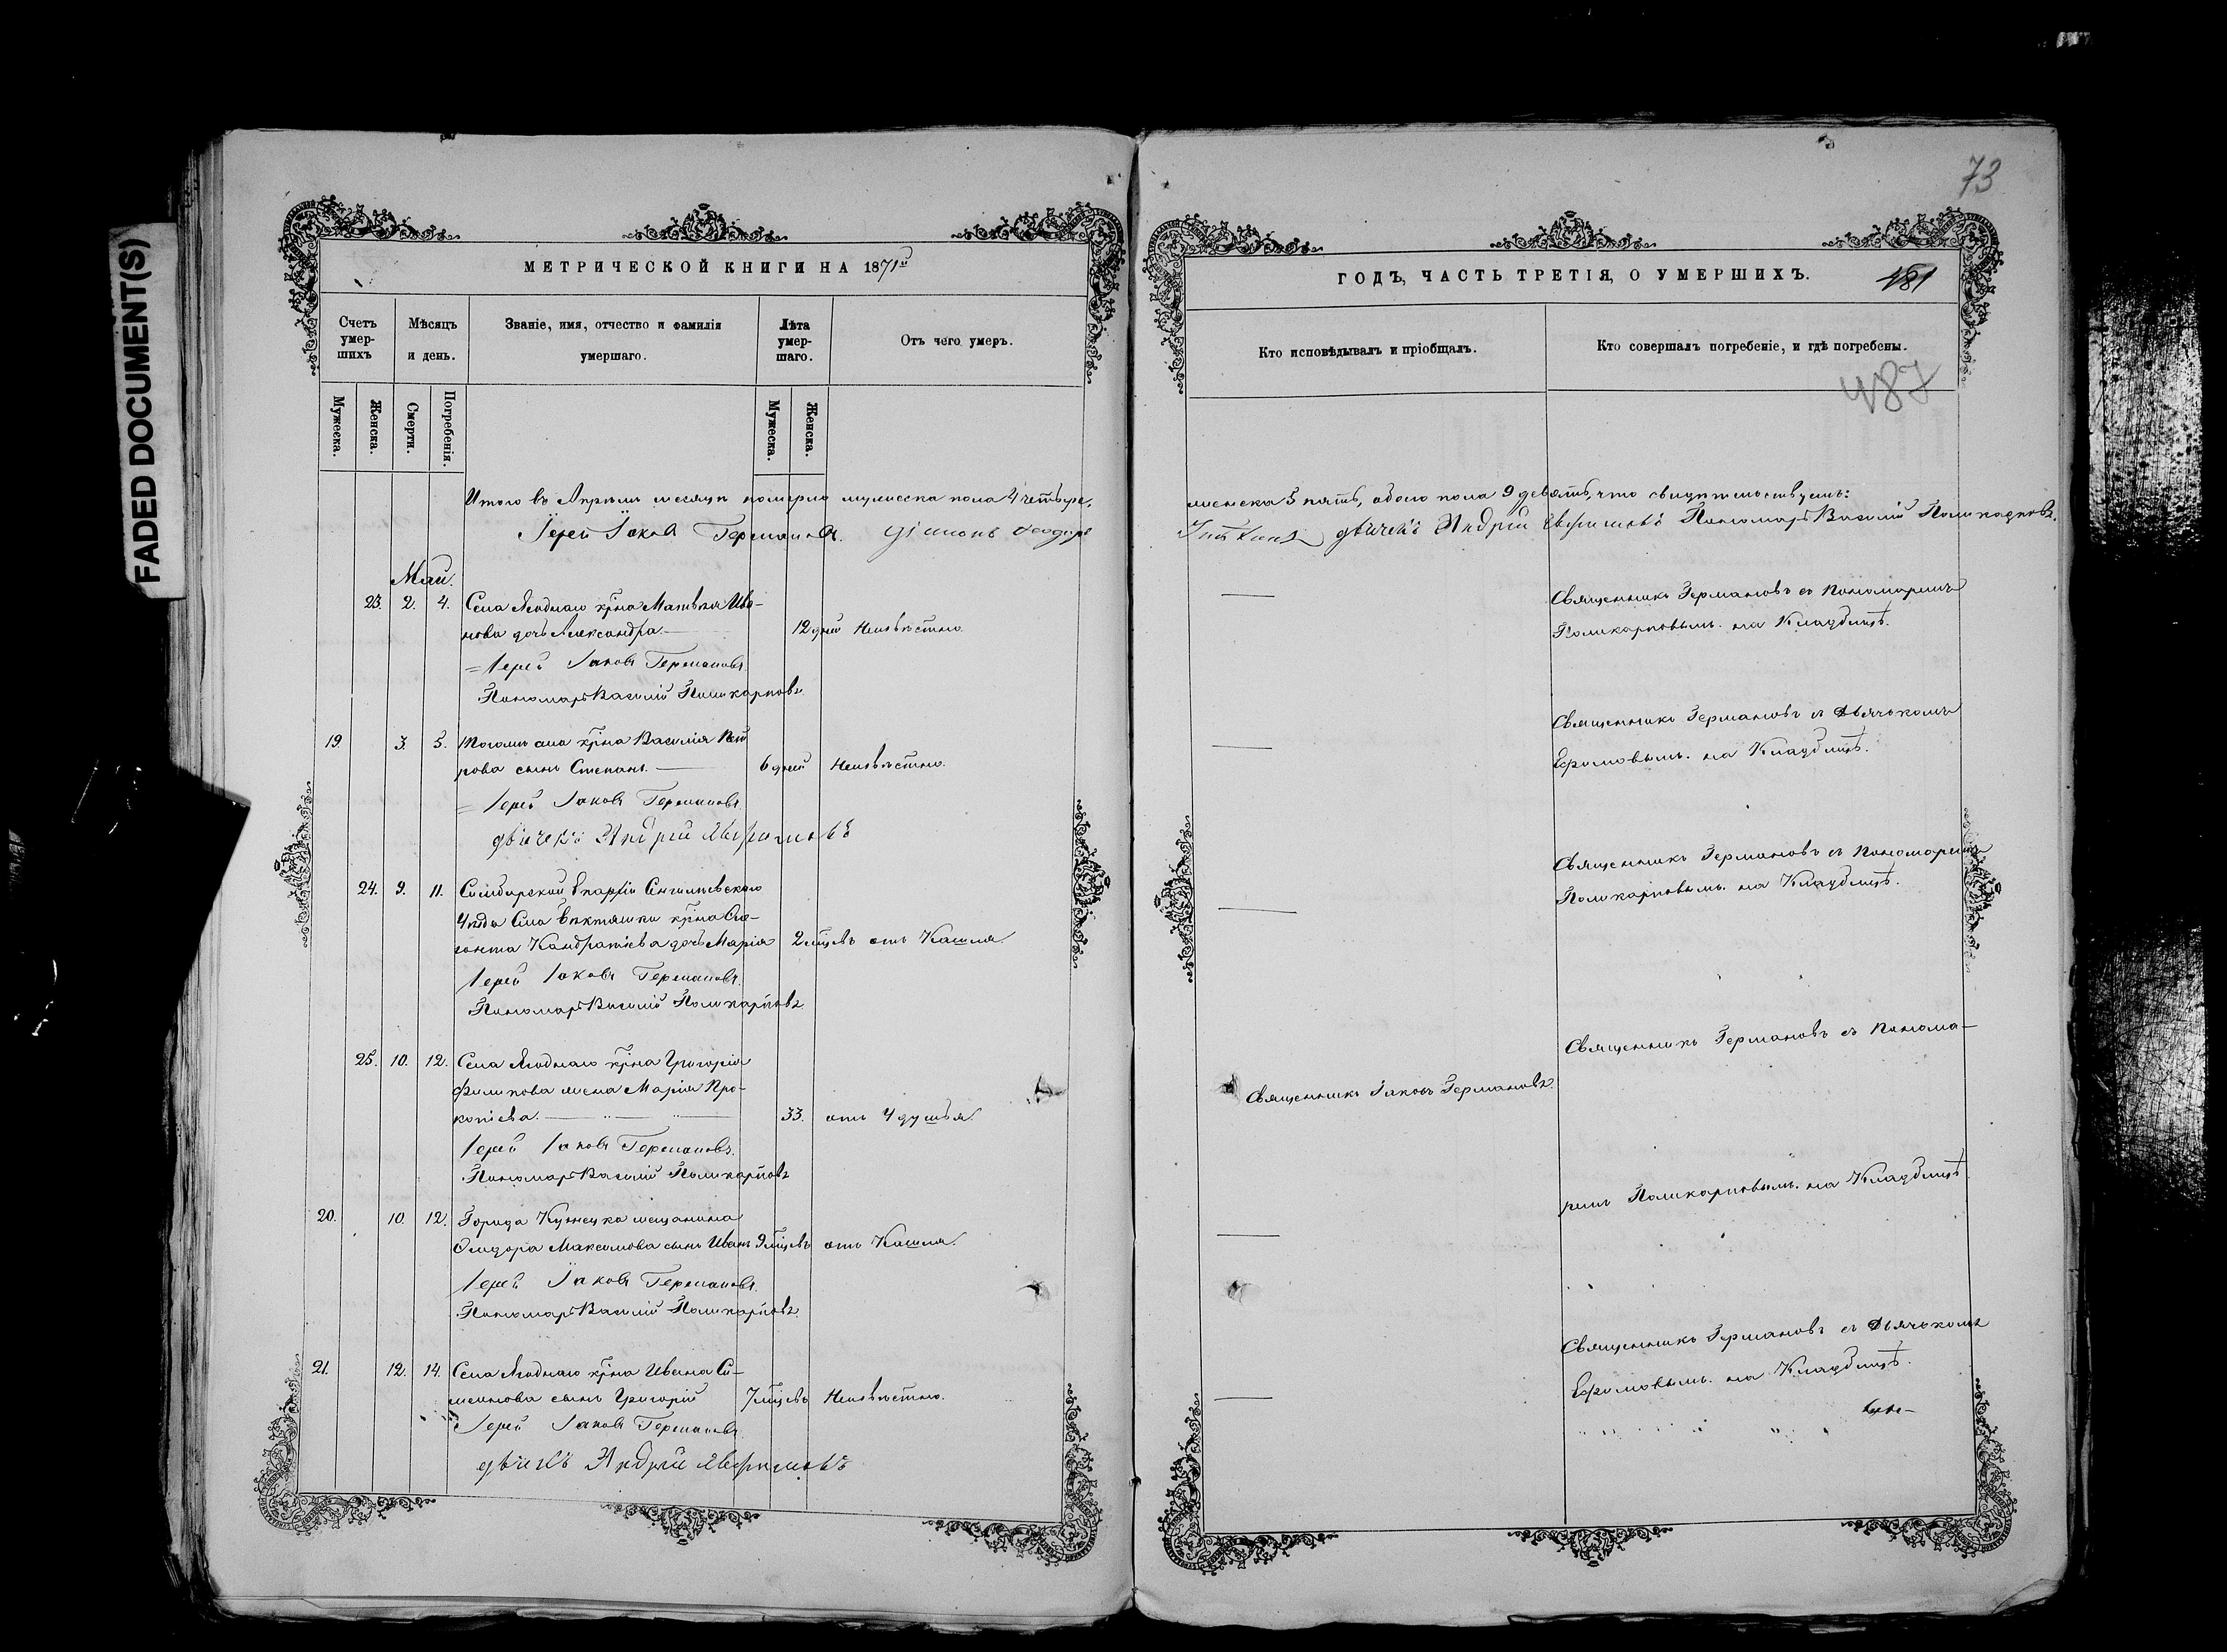 FADED DOCUMENT(S)
73
МЕТРИЧЕСКОЙ КНИГИ НА 1871й
Счетъ умер-шихъ
Мѣсяцъ и день.
Званіе, имя, отчество и фамилія умершаго.
Лѣта умер-шаго.
Отъ чего умеръ.
Мужеска.
Женска.
Смерти.
Погребенія.
Мужеска.
Женска.
Итого въ Апрѣлѣ месяцѣ померло мужеска пола 4 четыре,
Іерей Іаковъ Германовъ. Діаконъ Феодоръ
Май.
23. 2. 4. Села Ягоднаго крⷭ҇на Матвѣя Ива-
нова дочь Александра. 12 дней Неизвѣстно.
Іерей Іаковъ Германовъ.
Пономарь Василій Поликарповъ
19. 3. 5. Тогожъ села крⷭ҇на Василія Пет
рова сынъ Степанъ. 6 дней Неизвѣстно.
Іерей Іаковъ Германовъ
дьячекъ Андрей Ѣвфимовъ
24. 9. 11. Симбирской Епархіи Сенгилѣевскаго
Уѣзда Села крⷭ҇на
Кандратіева дочь Марія 2 мⷭ҇цевъ отъ Кашля.
Іерей Іаковъ Германовъ.
Пономарь Василій Поликарповъ
25. 10. 12. Села Ягоднаго крⷭ҇на Григорія
Филипова жена Марія Про-
копіева. 33. отъ Удушья.
Іерей Іаковъ Германовъ.
Пономарь Василій Поликарповъ
20. 10. 12. Города Кузнецка мещанина
Сидора Максимова сынъ Иванъ 9 мⷭ҇цевъ отъ Кашля.
Іерей Іаковъ Германовъ.
Пономарь Василій Поликарповъ.
21. 12. 14. Села Ягоднаго крⷭ҇на Ивана Си-
меонова сынъ Григорій 7 мⷭ҇цевъ Неизвѣстно.
Іерей Іаковъ Германовъ
дьячекъ Андрей Ѣвфимовъ
ГОДЪ, ЧАСТЬ ТРЕТІЯ, О УМЕРШИХЪ.
481
Кто исповѣдывалъ и пріобщалъ.
Кто совершалъ погребеніе, и гдѣ погребены.
487
женска 5 пять, обоего пола 9 девять, что свидѣтельствуемъ:
дьячекъ Андрей Ѣвфимовъ Пономарь Василій Поликарповъ.
Священникъ Германовъ съ Пономаремъ
Поликарповымъ. на Кладбищѣ.
Священникъ Германовъ съ Дьячкомъ
Ефимовымъ. на Кладбищѣ.
Священникъ Германовъ съ Пономаремъ
Поликарповымъ. на Кладбищѣ.
Священникъ Германовъ съ Понома-
Священникъ Іаковъ Германовъ.
ремъ Поликарповымъ. на Кладбищѣ
Священникъ Германовъ съ Дьячкомъ
Ефимовымъ. на Кладбищѣ.